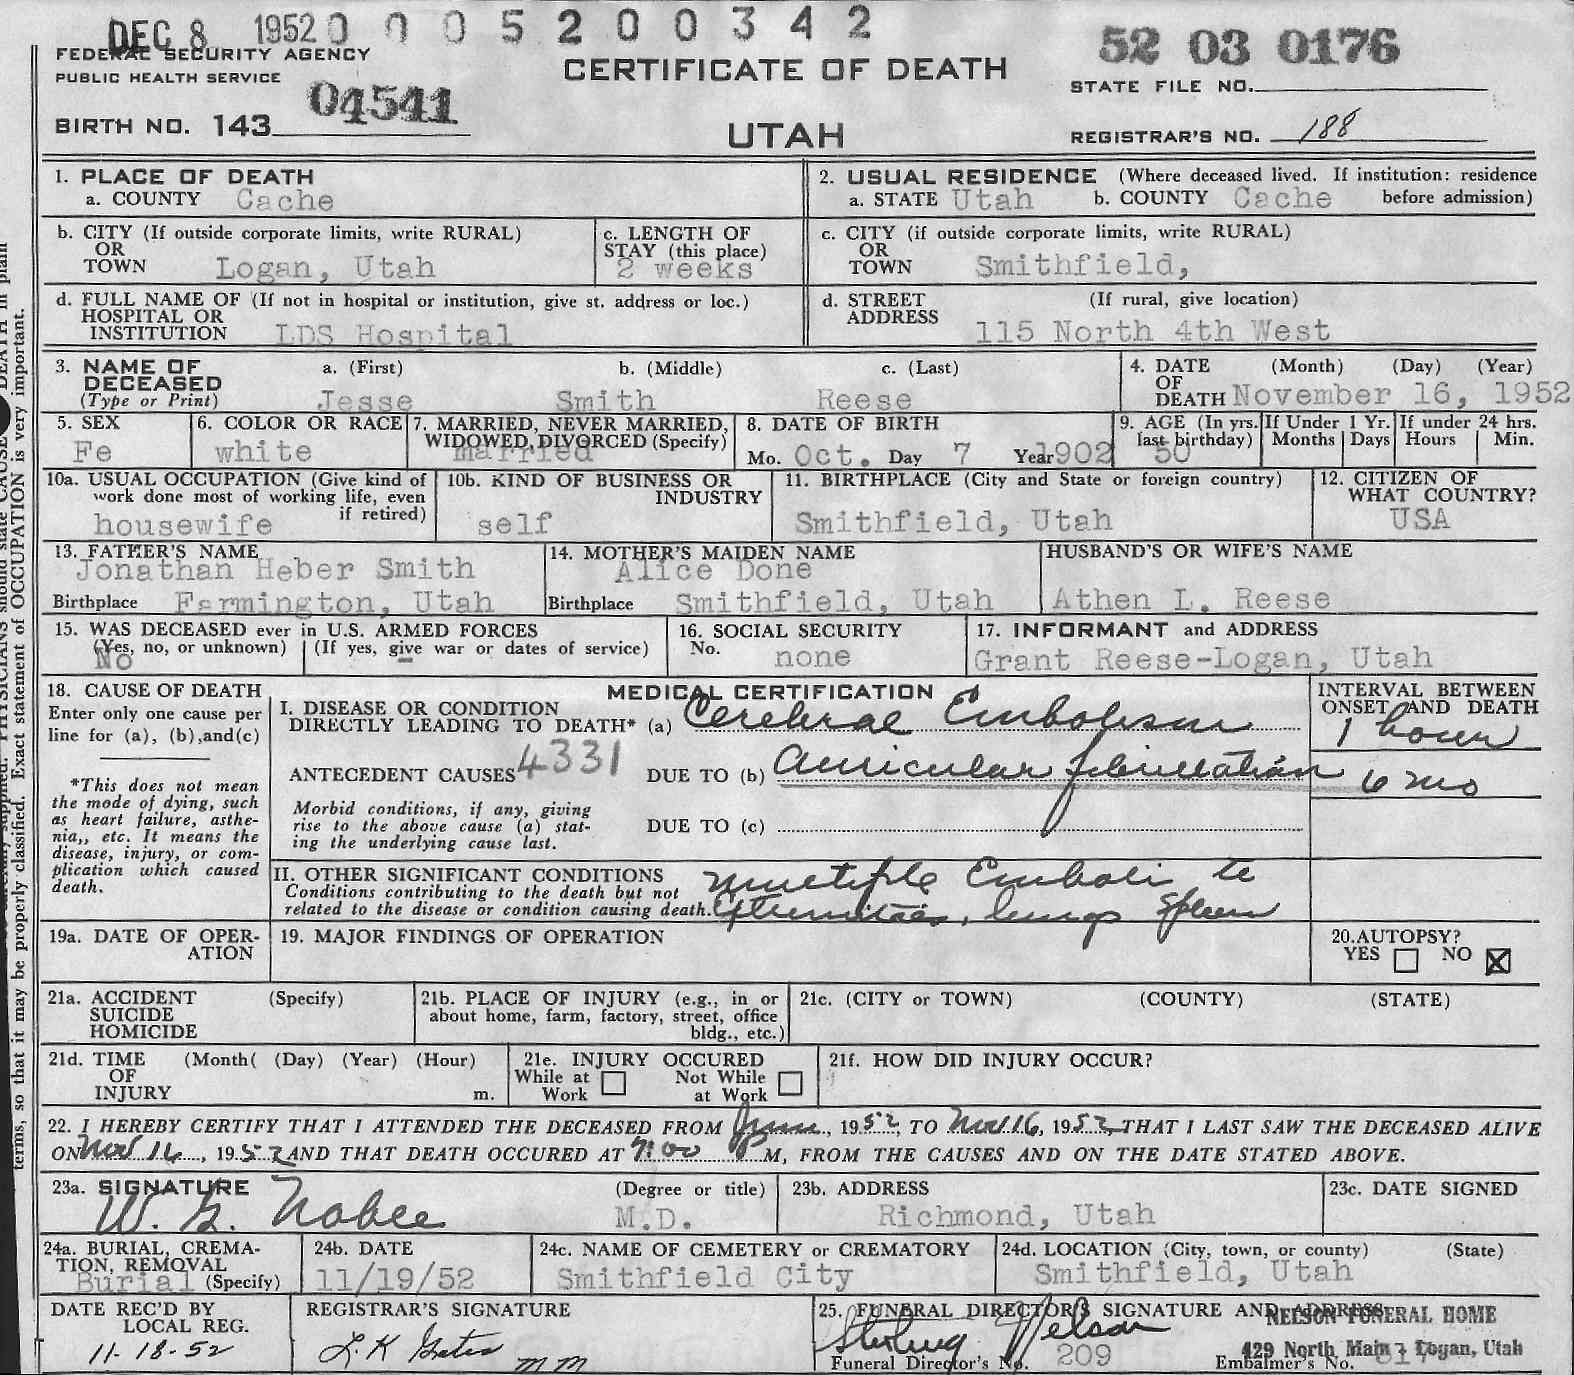 DEC 8 1952 0 0 0 5 2 0 0 3 4 2
52 03 0176
FEDERAL SECURITY AGENCY
PUBLIC HEALTH SERVICE
CERTIFICATE OF DEATH
STATE FILE NO.
04541
BIRTH NO. 143
UTAH
REGISTRAR'S NO. 188
1. PLACE OF DEATH
a. COUNTY Cache
2. USUAL RESIDENCE (Where deceased lived. If institution: residence
a. STATE Utah b. COUNTY Cache before admission)
b. CITY (If outside corporate limits, write RURAL)
OR
TOWN Logan, Utah
c. LENGTH OF
STAY (this place)
2 weeks
c. CITY (if outside corporate limits, write RURAL)
OR
TOWN Smithfield,
d. FULL NAME OF (If not in hospital or institution, give st. address or loc.)
HOSPITAL OR
INSTITUTION LDS Hospital
d. STREET (If rural, give location)
ADDRESS
115 North 4th West
3. NAME OF a. (First) b. (Middle) c. (Last)
DECEASED
(Type or Print) Jesse Smith Reese
4. DATE (Month) (Day) (Year)
OF
DEATH November 16, 1952
5. SEX
Fe
6. COLOR OR RACE
white
7. MARRIED, NEVER MARRIED,
WIDOWED, DIVORCED (Specify)
married
8. DATE OF BIRTH
Mo. Oct. Day 7 Year 1902
9. AGE (In yrs.
last birthday)
50
If Under 1 Yr.
Months Days
If under 24 hrs.
Hours Min.
10a. USUAL OCCUPATION (Give kind of
work done most of working life, even
if retired)
housewife
10b. KIND OF BUSINESS OR
INDUSTRY
self
11. BIRTHPLACE (City and State or foreign country)
Smithfield, Utah
12. CITIZEN OF
WHAT COUNTRY?
USA
13. FATHER'S NAME
Jonathan Heber Smith
Birthplace Farmington, Utah
14. MOTHER'S MAIDEN NAME
Alice Done
Birthplace Smithfield, Utah
HUSBAND'S OR WIFE'S NAME
Athen L. Reese
15. WAS DECEASED ever in U.S. ARMED FORCES
(Yes, no, or unknown) (If yes, give war or dates of service)
No -
16. SOCIAL SECURITY
No.
none
17. INFORMANT and ADDRESS
Grant Reese-Logan, Utah
18. CAUSE OF DEATH
Enter only one cause per
line for (a), (b),and(c)
*This does not mean
the mode of dying, such
as heart failure, asthe-
nia,, etc. It means the
disease, injury, or com-
plication which caused
death.
MEDICAL CERTIFICATION
I. DISEASE OR CONDITION
DIRECTLY LEADING TO DEATH* (a) Cerebral Embolism
ANTECEDENT CAUSES 4331 DUE TO (b) Auricular fibrillation
Morbid conditions, if any, giving
rise to the above cause (a) stat-
ing the underlying cause last.
DUE TO (c)
INTERVAL BETWEEN
ONSET AND DEATH
1 hour
6 mo
II. OTHER SIGNIFICANT CONDITIONS
Conditions contributing to the death but not
related to the disease or condition causing death.
Multiple Emboli to
Extremities, lungs Spleen
19a. DATE OF OPER-
ATION
19. MAJOR FINDINGS OF OPERATION
20.AUTOPSY?
YES NO X
21a. ACCIDENT (Specify)
SUICIDE
HOMICIDE
21b. PLACE OF INJURY (e.g., in or
about home, farm, factory, street, office
bldg., etc.)
21c. (CITY or TOWN) (COUNTY) (STATE)
21d. TIME (Month( (Day) (Year) (Hour)
OF
INJURY m.
21e. INJURY OCCURED
While at Work
Not While at Work
21f. HOW DID INJURY OCCUR?
22. I HEREBY CERTIFY THAT I ATTENDED THE DECEASED FROM June, 1952, TO Nov 16, 1952, THAT I LAST SAW THE DECEASED ALIVE
ON Nov 16, 1952 AND THAT DEATH OCCURED AT 7:00 P M, FROM THE CAUSES AND ON THE DATE STATED ABOVE.
23a. SIGNATURE (Degree or title)
W. G. Noble M.D.
23b. ADDRESS
Richmond, Utah
23c. DATE SIGNED
24a. BURIAL, CREMA-
TION, REMOVAL
Burial (Specify)
24b. DATE
11/19/52
24c. NAME OF CEMETERY or CREMATORY
Smithfield City
24d. LOCATION (City, town, or county) (State)
Smithfield, Utah
DATE REC'D BY
LOCAL REG.
11-18-52
REGISTRAR'S SIGNATURE
L. K. Gates
mm
25. FUNERAL DIRECTOR'S SIGNATURE AND ADDRESS
Sterling Nelson
NELSON FUNERAL HOME
429 North Main - Logan, Utah
Funeral Director's No. 209 Embalmer's No.
terms, so that it may be properly classified. Exact statement of OCCUPATION is very important.